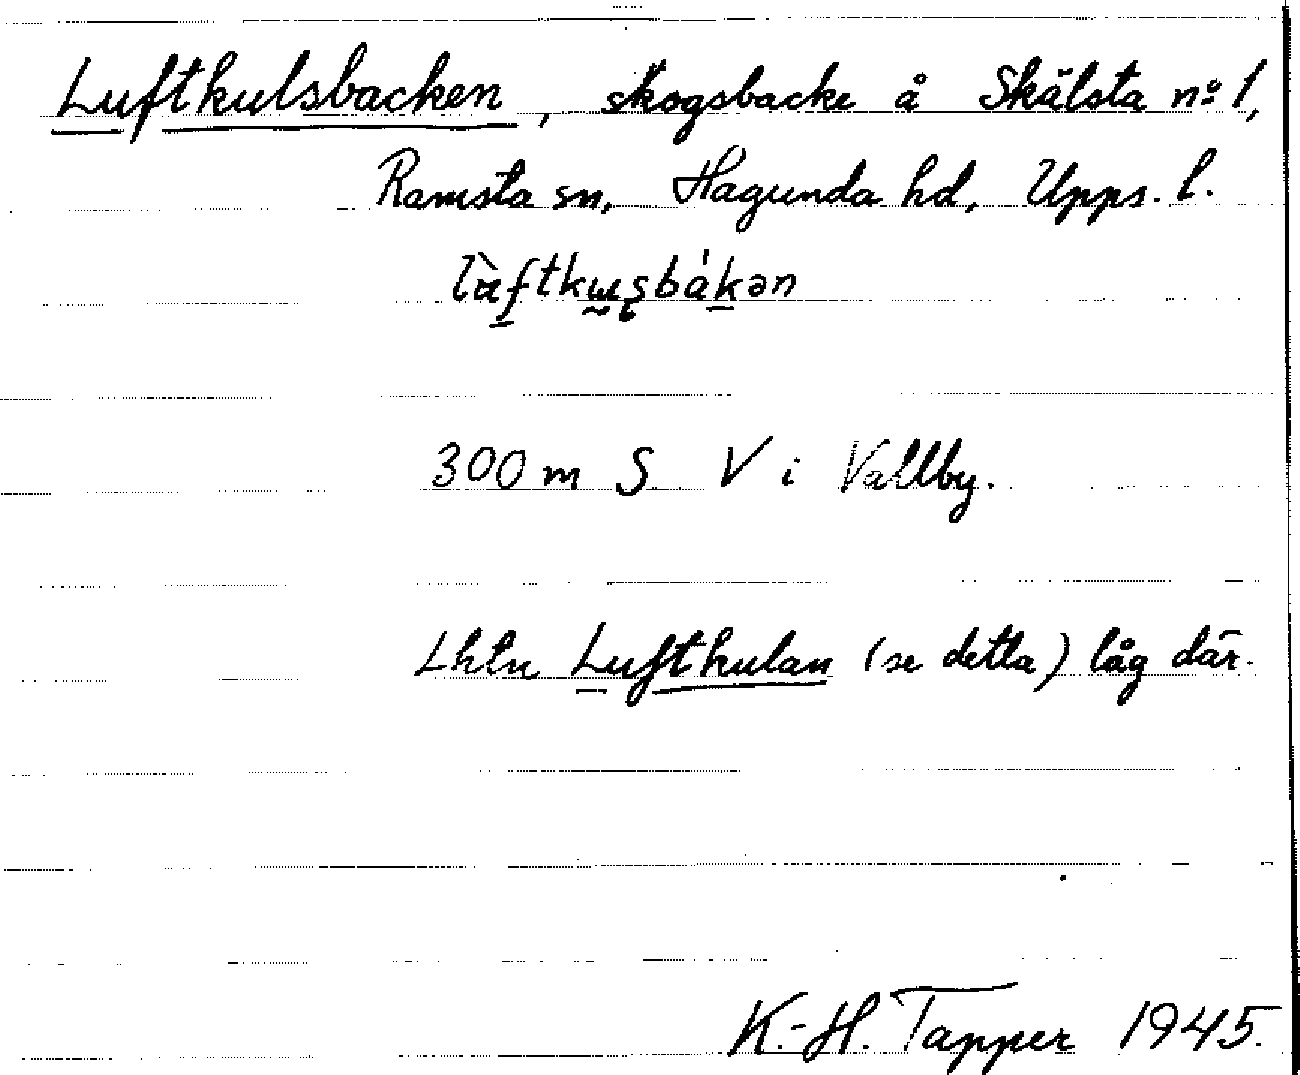 Luftkulsbacken, skogsbacke å Skälsta nº 1,
Ramsta sn, Hagunda hd, Upps. l.
300 m S V i Vallby.
Lhtn Luftkulan (se detta) låg där.
K.-H. Tapper 1945.